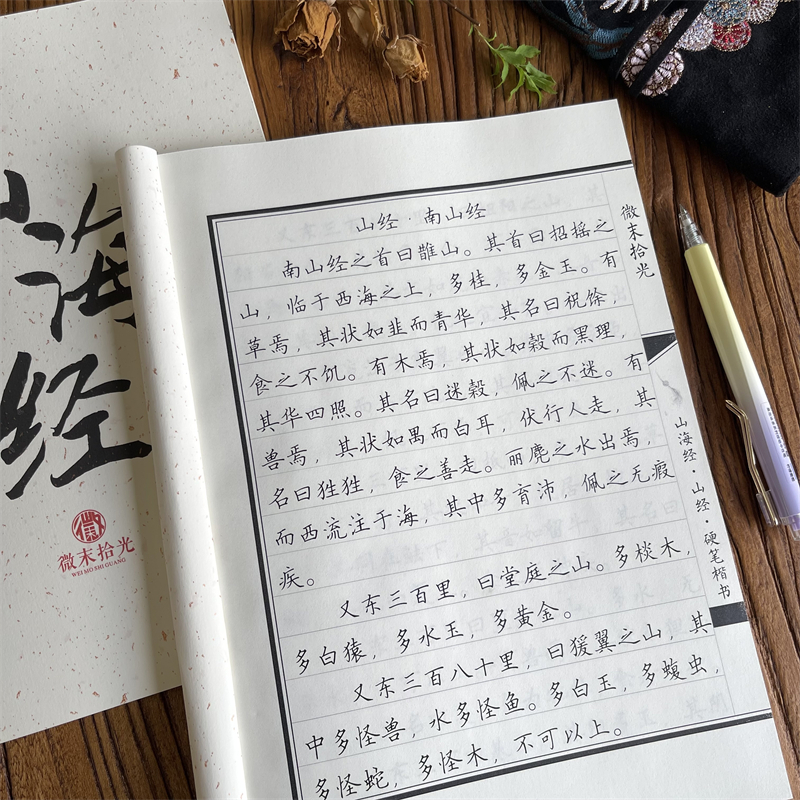 海
经
微末拾光
WEI MO SHI GUANG
山经·南山经
南山经之首曰䧿山。其首曰招摇之
山，临于西海之上，多桂，多金玉。有
草焉，其状如韭而青华，其名曰祝馀，
食之不饥。有木焉，其状如榖而黑理，
其华四照。其名曰迷榖，佩之不迷。有
兽焉，其状如禺而白耳，伏行人走，其
名曰狌狌，食之善走。丽麂之水出焉，
而西流注于海，其中多育沛，佩之无瘕
疾。
又东三百里，曰堂庭之山。多棪木，
多白猿，多水玉，多黄金。
又东三百八十里，曰猨翼之山，其
中多怪兽，水多怪鱼。多白玉，多蝮虫，
多怪蛇，多怪木，不可以上。
微末拾光
山海经·山经·硬笔楷书